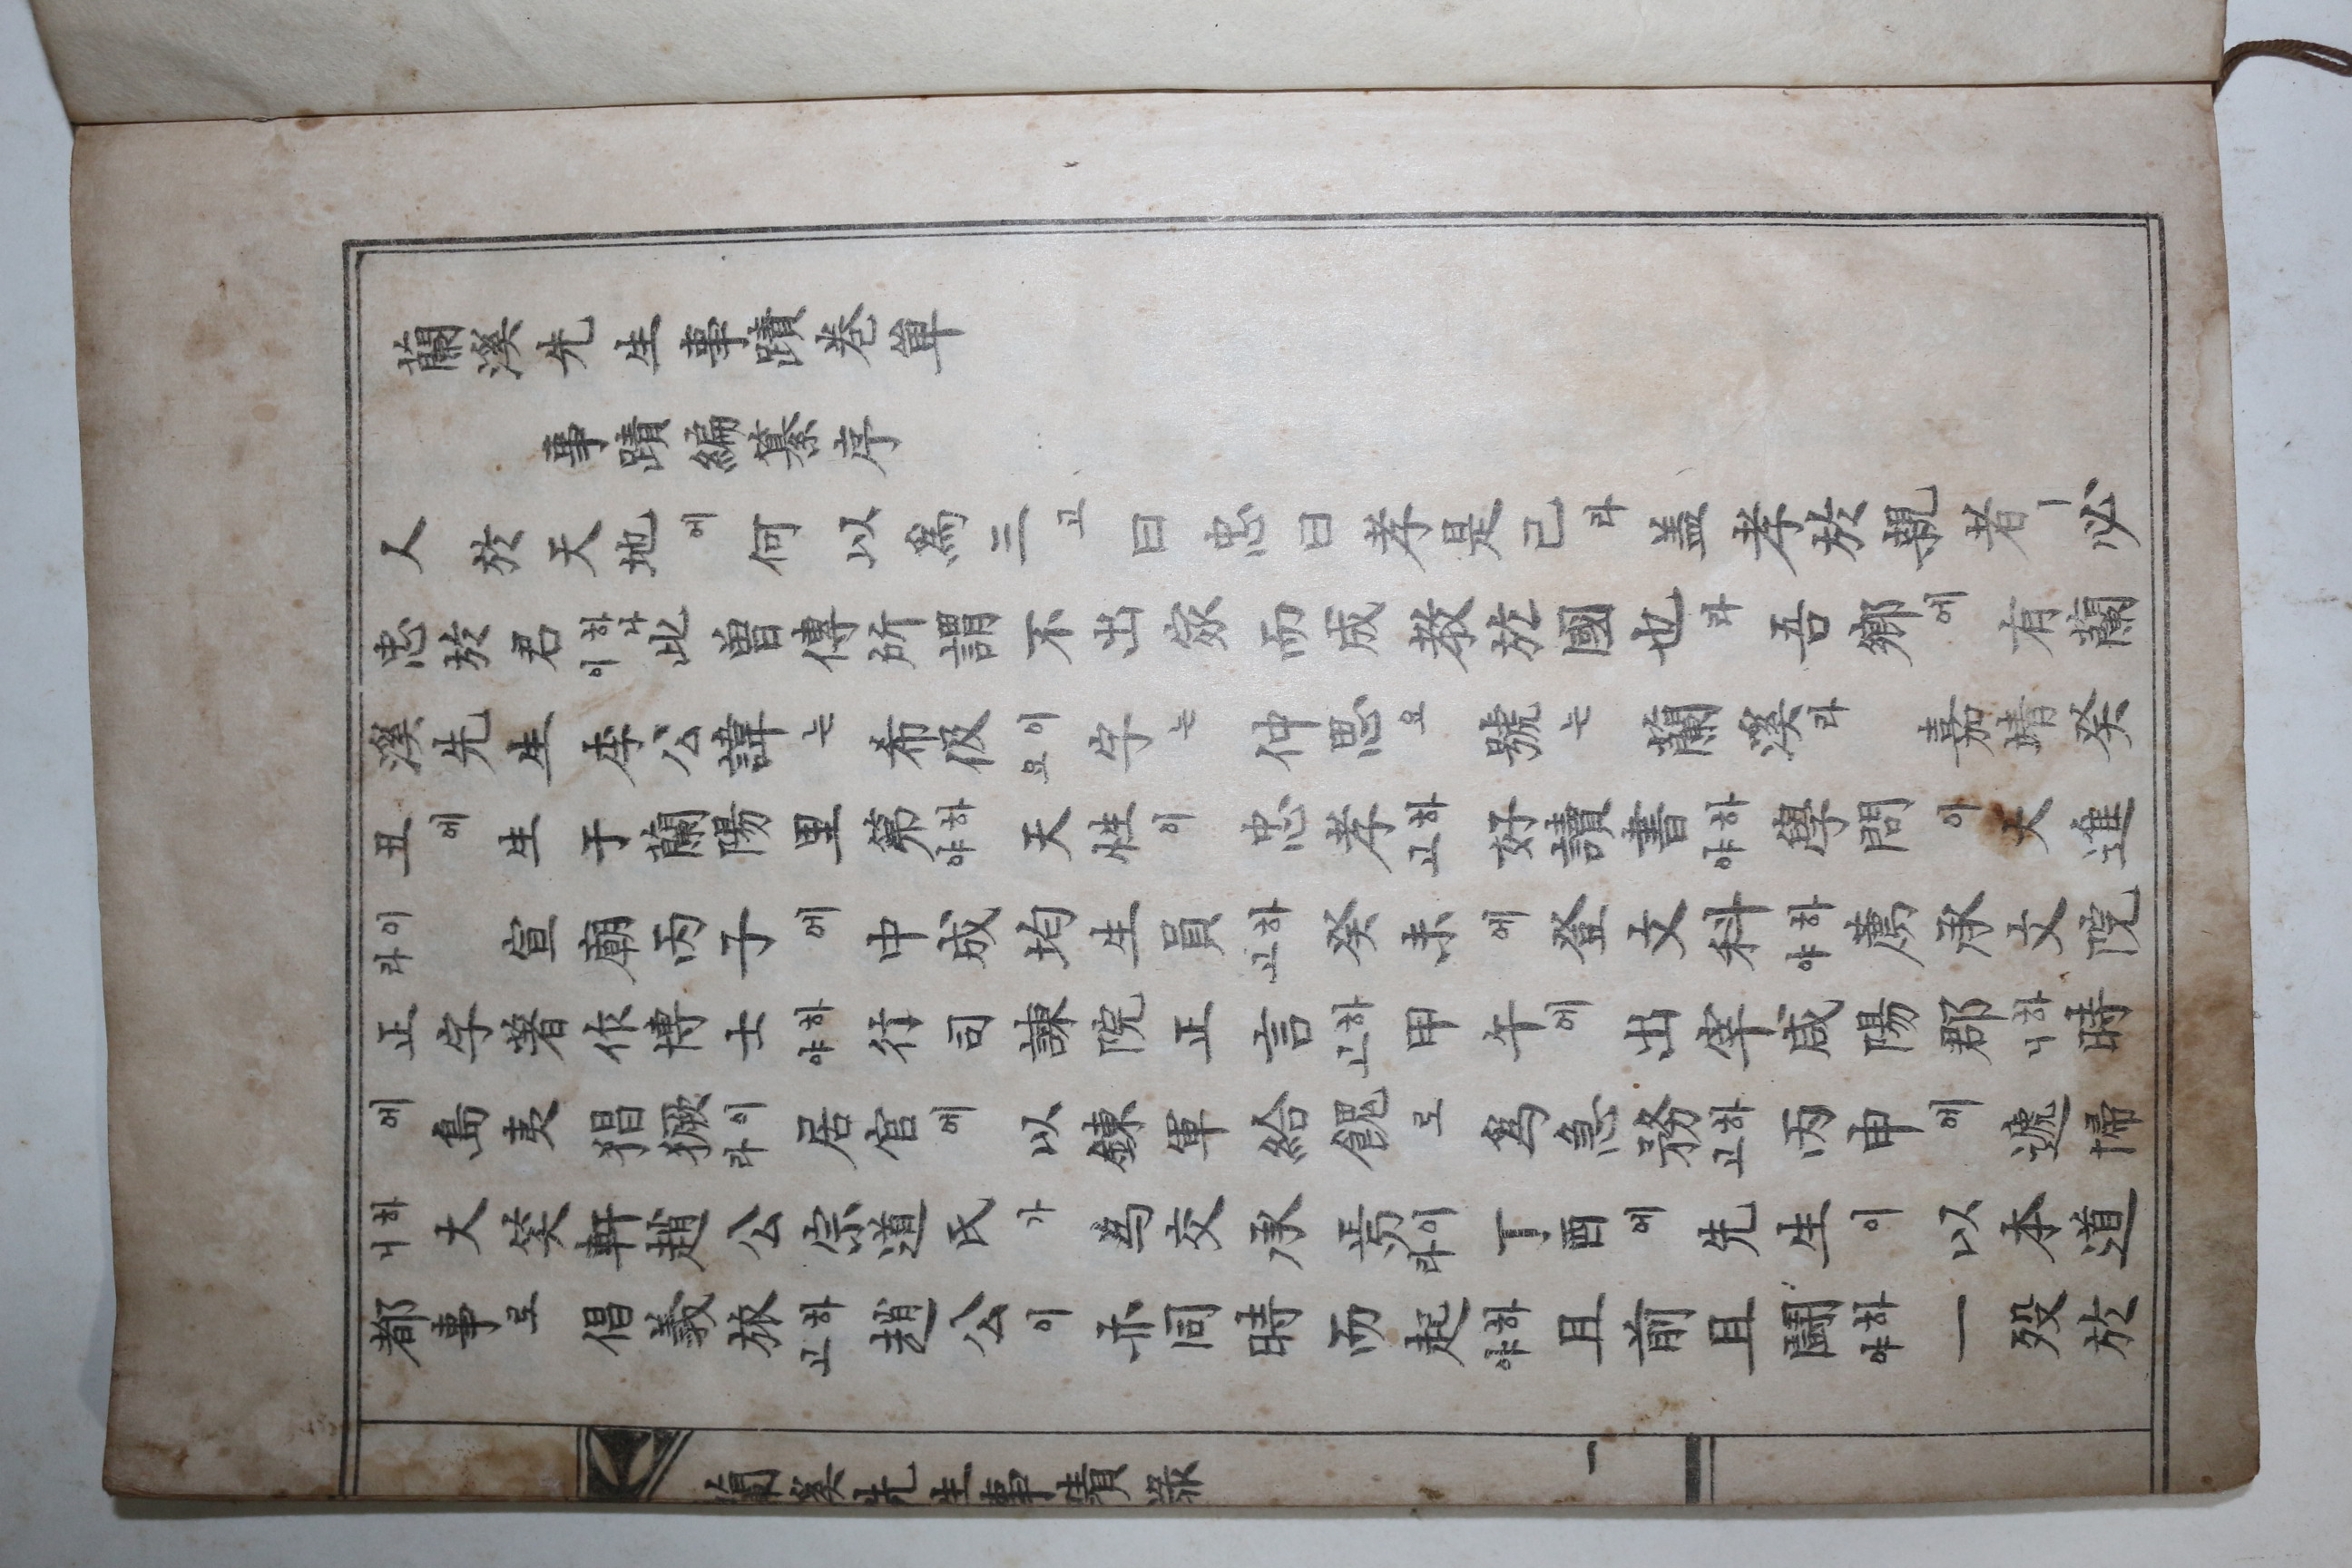 蘭溪先生事蹟卷單
事蹟編纂序
人於天地에何以爲三고曰忠曰孝是已라盖孝於親者ㅣ必
忠於君이하나此曾傳所謂不出家而成敎於國也라吾鄕에有蘭
溪先生李公諱는希伋이요字는仲思요號는蘭溪라嘉靖癸
丑에生于蘭陽里第하야天性이忠孝하고好讀書하야學問이大進
이라宣廟丙子에中成均生員하고癸未에登文科하야薦承文院
正字著作博士하야行司諫院正言하고甲午에出宰咸陽郡하니時
에島夷猖獗이라居官에以鍊軍給餽로爲急務하고丙申에遞歸
하니大笑軒趙公宗道氏가爲交承焉이라丁酉에先生이以本道
都事로倡義旅하고趙公이亦同時而起하야且前且鬪하야一歿於
蘭溪先生事蹟錄
一